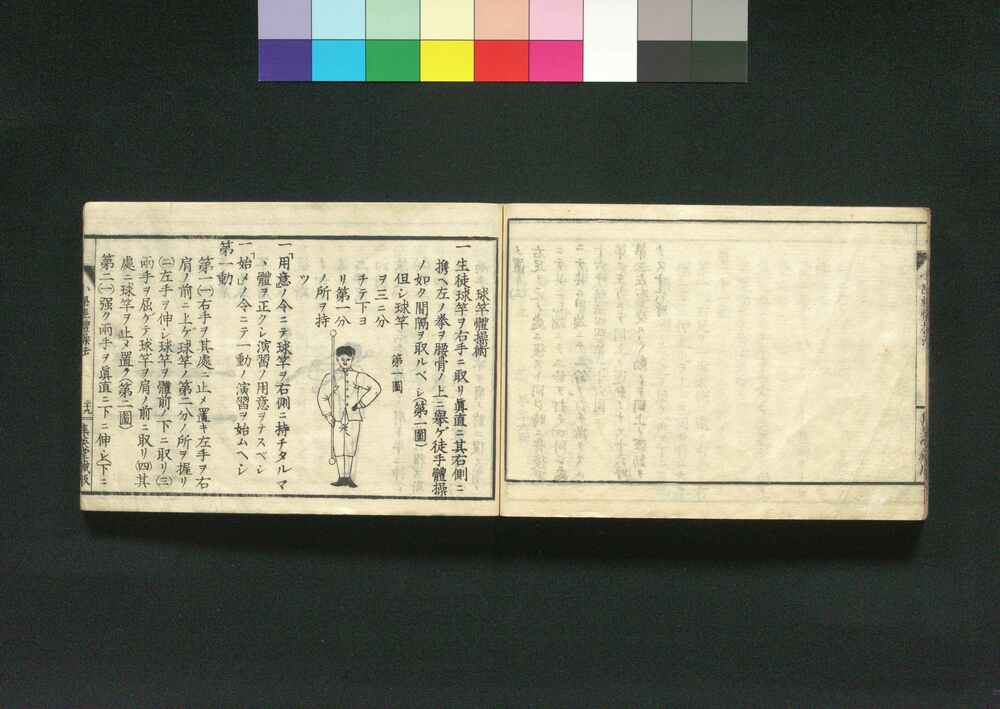 球竿體操術
一 生徒球竿ヲ右手ニ取リ眞直ニ其右側ニ
携ヘ左ノ拳ヲ腰骨ノ上ニ擧ゲ徒手體操
ノ如ク間隔ヲ取ルベシ(第一圖)
但シ球竿
ヲ三ニ分
チテ下ヨ
リ第一分
ノ所ヲ持
ツ
第一圖
一「用意」ノ令ニテ球竿ヲ右側ニ持チタルマ
ヽ體ヲ正クシ演習ノ用意ヲナスベシ
一「始メ」ノ令ニテ一動ノ演習ヲ始ムヘシ
第一動
第一(一)右手ヲ其處ニ止メ置キ左手ヲ右
肩ノ前ニ上ケ球竿ノ第二分ノ所ヲ握リ
(二)左手ヲ伸シ球竿ヲ體前ノ下ニ取リ(三)
兩手ヲ屈ゲテ球竿ヲ肩ノ前ニ取リ(四)其
處ニ球竿ヲ止メ置ク(第二圖)
第二(一)强ク兩手ヲ眞直ニ下ニ伸シ(下ニ